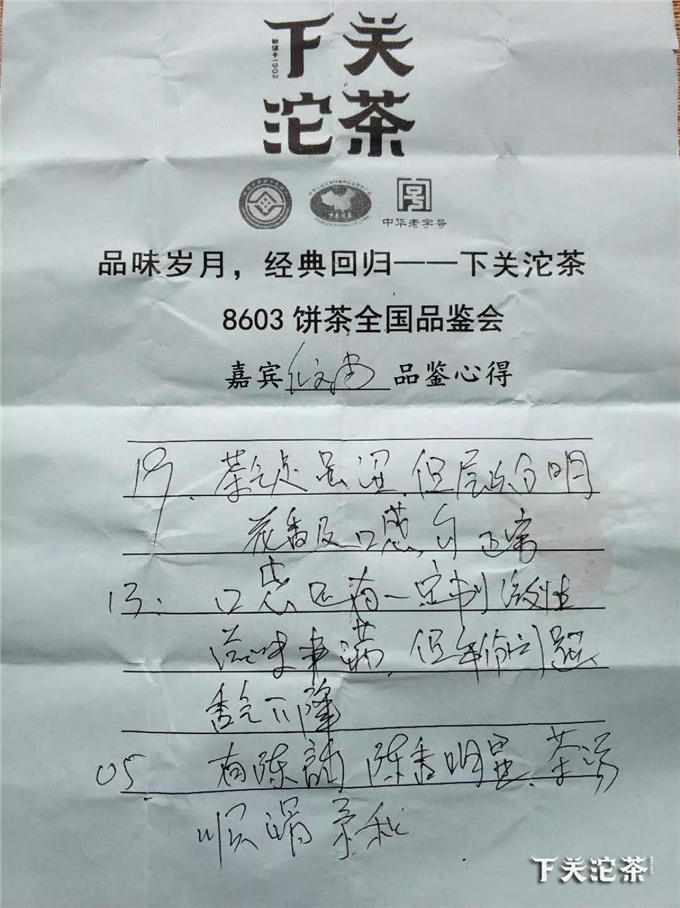 下关
沱茶
始创于1902
中华老字号
品味岁月，经典回归——下关沱茶
8603 饼茶全国品鉴会
嘉宾 品鉴心得
19. 茶气虽 但层次分明
花香及口感 正常
13: 口感已有一定刺激性
滋味丰满，但年份问题
香气下降
05. 有陈韵 陈香明显，茶汤
顺滑柔和
下关沱茶